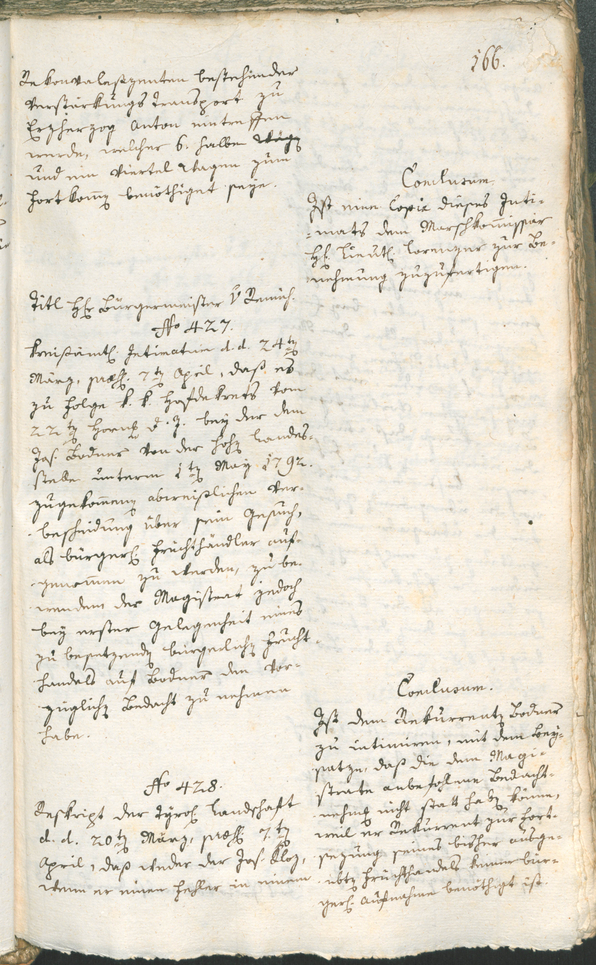 166.
Rekonvaleszenten bestehender
Verstärkungs Transport zu
Erzherzog Anton eintreffen
werde, welcher 6. halbe Wäg
und ein Viertel Wagen zum
Fortkomm benöthiget seye.
Conclusum.
Ist eine Copia dieses Inti-
mats dem Marschkommissär
H. Lieut. Lorenzer zur Be-
nehmung zuzufertigen.
Titl H. Bürgermeister v
No 427.
Kreisämtl. Intimatum d. d. 24ten
März, præs. 7ten April, daß es
zu Folge k. k. Hofdekrets vom
22ten Horng d. J. bey der dem
Jos. Bodner von der hohen Landes-
stelle unterm 1ten May 1792.
zugekommenen abweislichen Ver-
bescheidung über sein Gesuch,
als bürgerl. Früchthändler auf-
genommen zu werden, zu be-
wenden, der Magistrat jedoch
bey erster Gelegenheit eines
zu besetzenden bürgerlichen Frucht-
handels auf Bodner den vor-
züglichen Bedacht zu nehmen
habe.
Conclusum.
Ist dem Rekurrenten Bodner
zu intimiren, mit dem Bey-
satze, daß die dem Magi-
strate anbefohlne Bedacht-
nehmg nicht statt haben könne,
weil er Rekurrent zur Fort-
setzung seines bisher ausge-
übten Fruchthandels keiner bür-
gerl. Aufnahme benöthigt ist.
No 428.
Reskript der Tyrol. Landschaft
d. d. 20ten März, præs. 7ten
April, daß weder der Jos.
wenn er einen Fehler in einem